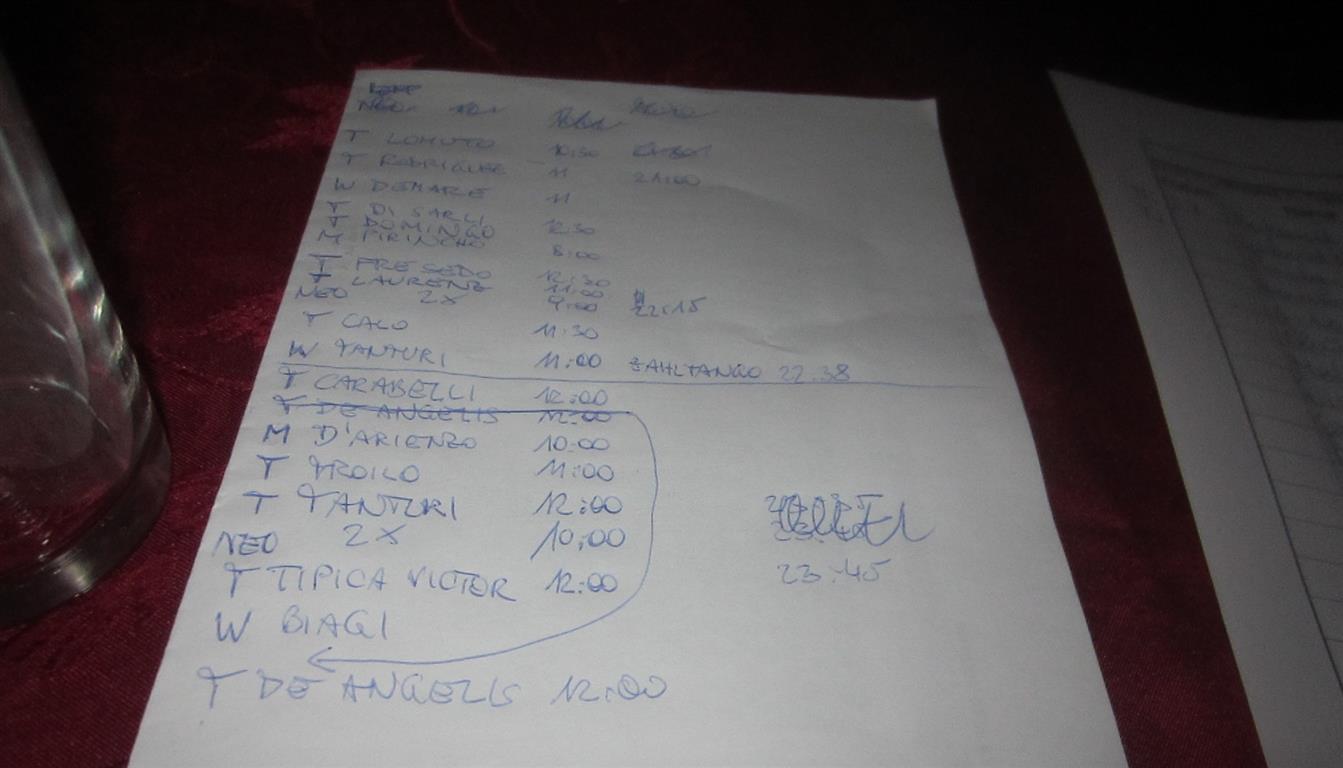 T LOMUTO 10:30
T RODRIGUEZ 11 21:00
W DEMARE 11
T DI SARLI 12:30
T DOMINGO
M PIRINCHO 8:00
T FRESEDO 12:30
T LAURENZ 11:00
NEO 2X 9:00 22:15
T CALO 11:30
W TANTURI 11:00 ZAHLTANGO 22:38
T CARABELLI 12:00
T DE ANGELIS 12:00
M D'ARIENZO 10:00
T TROILO 11:00
T TANTURI 12:00
NEO 2X 10:00
23:45
T TIPICA VICTOR 12:00
W BIAGI
T DE ANGELIS 12:00